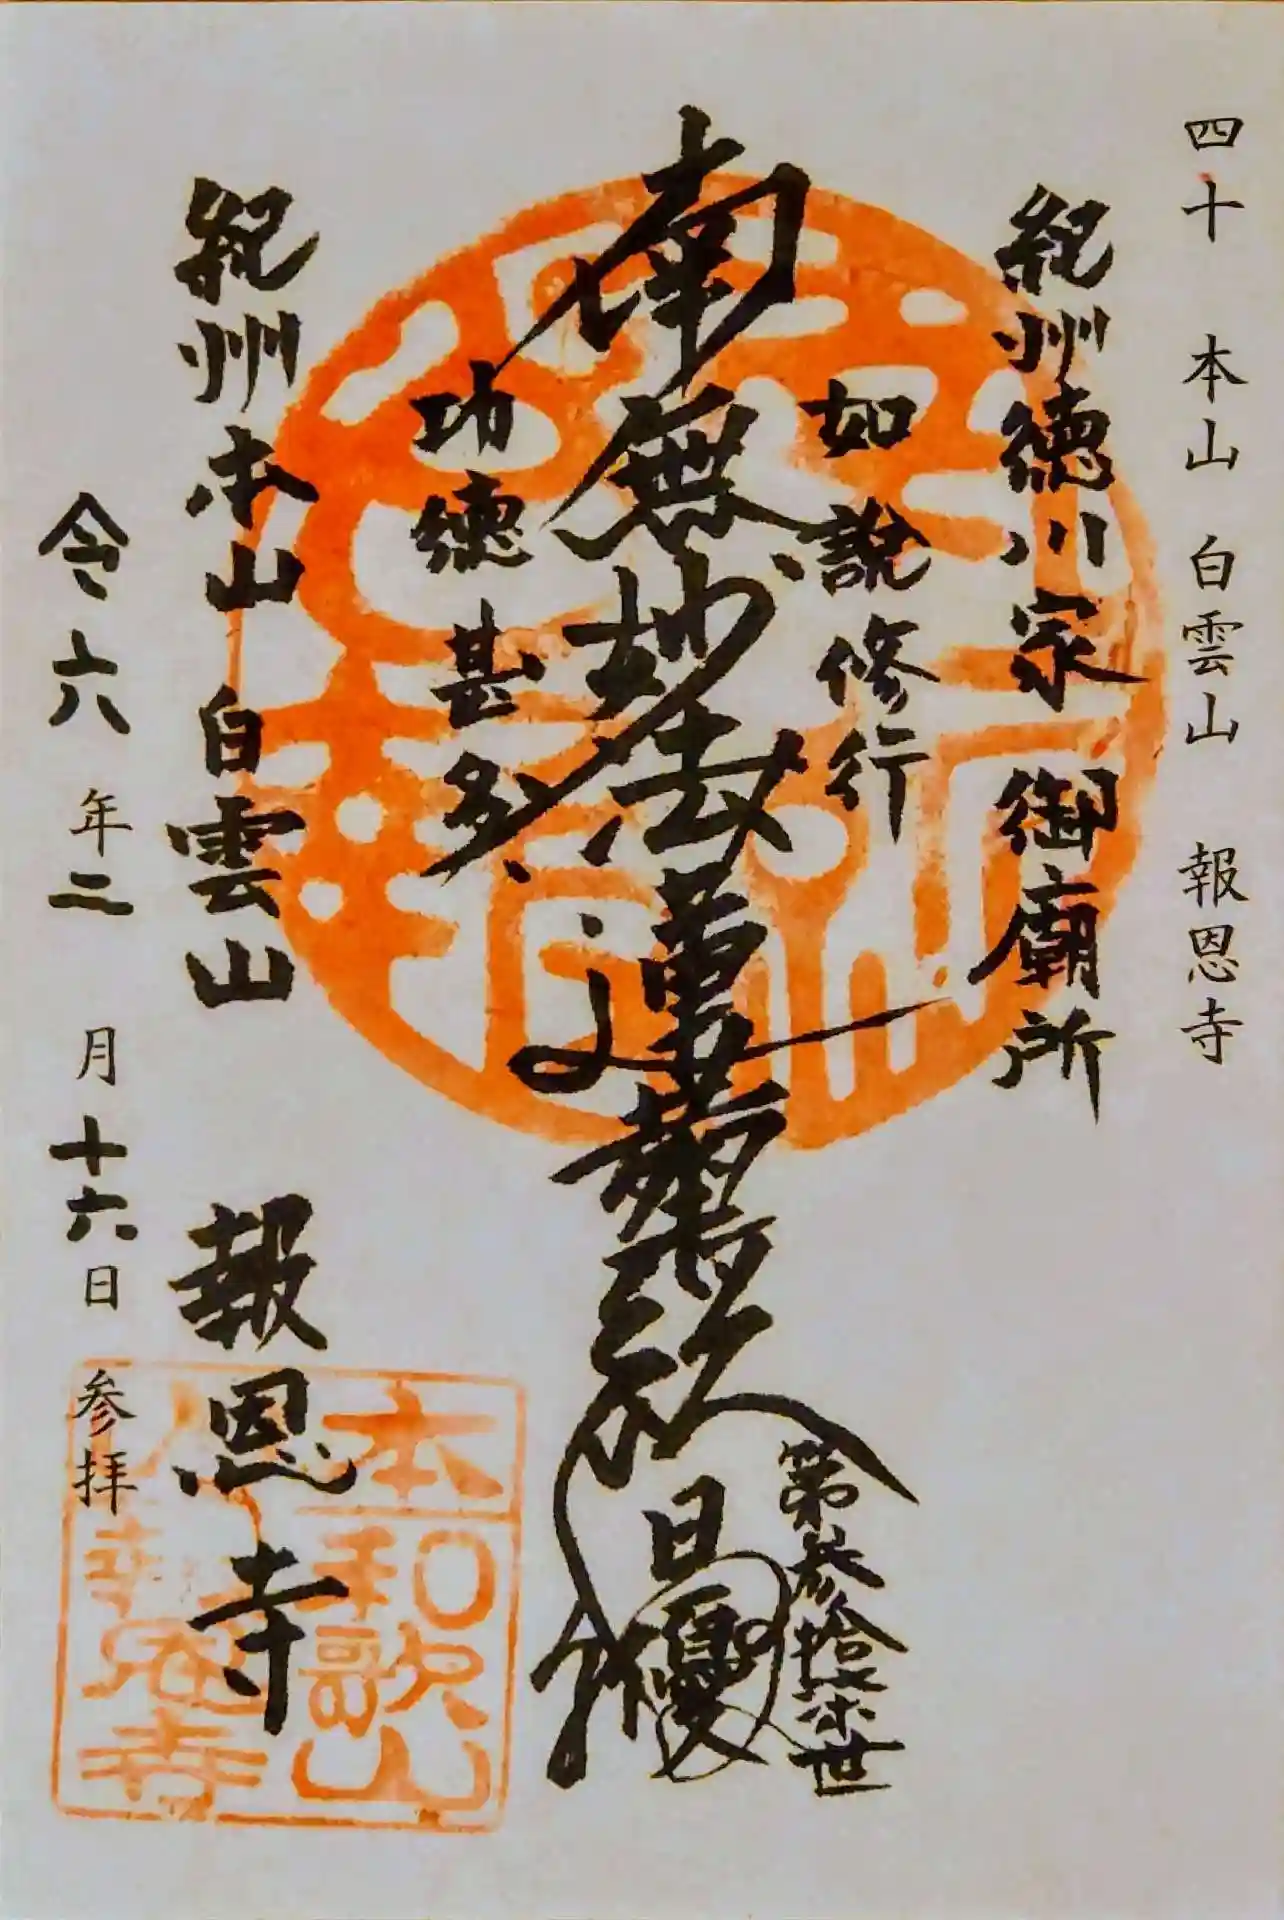 四十 本山 白雲山 報恩寺
紀州徳川家 御廟所
如説修行
南無妙法蓮華経
功徳甚多
第参拾柒世
日
紀州本山 白雲山 報恩寺
令六年二月十六日 参拝
本
和歌山
報恩寺